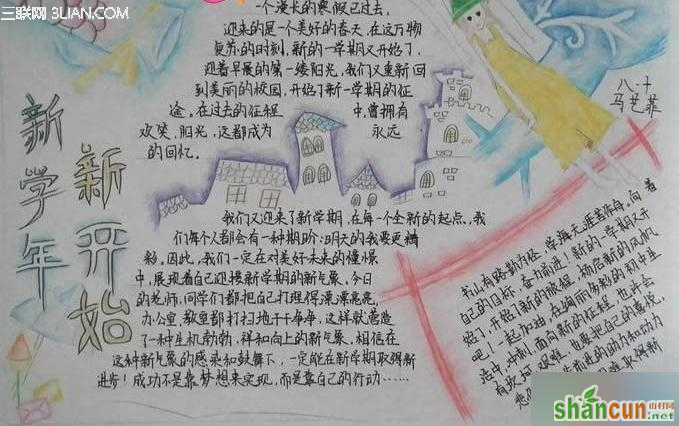 三联网 3LIAN.COM
一个漫长的寒假已过去,
迎来的是一个美好的春天,在这万物
复苏的时刻,新的一学期又开始了,
迎着早晨的第一缕阳光,我们又重新回
到美丽的校园,开始了新一学期的征
途,在过去的征程中,曾拥有
欢笑,阳光,这都成为永远
的回忆。
八、十
马艺菲
新学年
新开始
我们又迎来了新学期,在每一个全新的起点,我
们每个人都会有一种期盼:明天的我要更精
彩。因此,我们一定在对美好未来的憧憬
中,展现着自己迎接新学期的新气象,今日
的老师,同学们都把自己打理得漂漂亮亮,
办公室,教室都打扫地干干净净,这样就营造
了一种生机勃勃,祥和向上的新气象,相信在
这种新气象的感染和鼓舞下,一定能在新学期取得新
进步!成功不是靠梦想来实现,而是靠自己的行动……
书山有路勤为径,学海无涯苦作舟,向着
自己的目标,奋力前进!新的一学期又开
始了,开始了新的旅程,扬启新的风帆
吧!一起加油,在绚丽多彩的初中生
活中,冲刺!面向新的征程,也许会
有坎坷,艰难,也要把自己的喜悦,
前进的动力和动力
取得新
shancun
山村网
.net